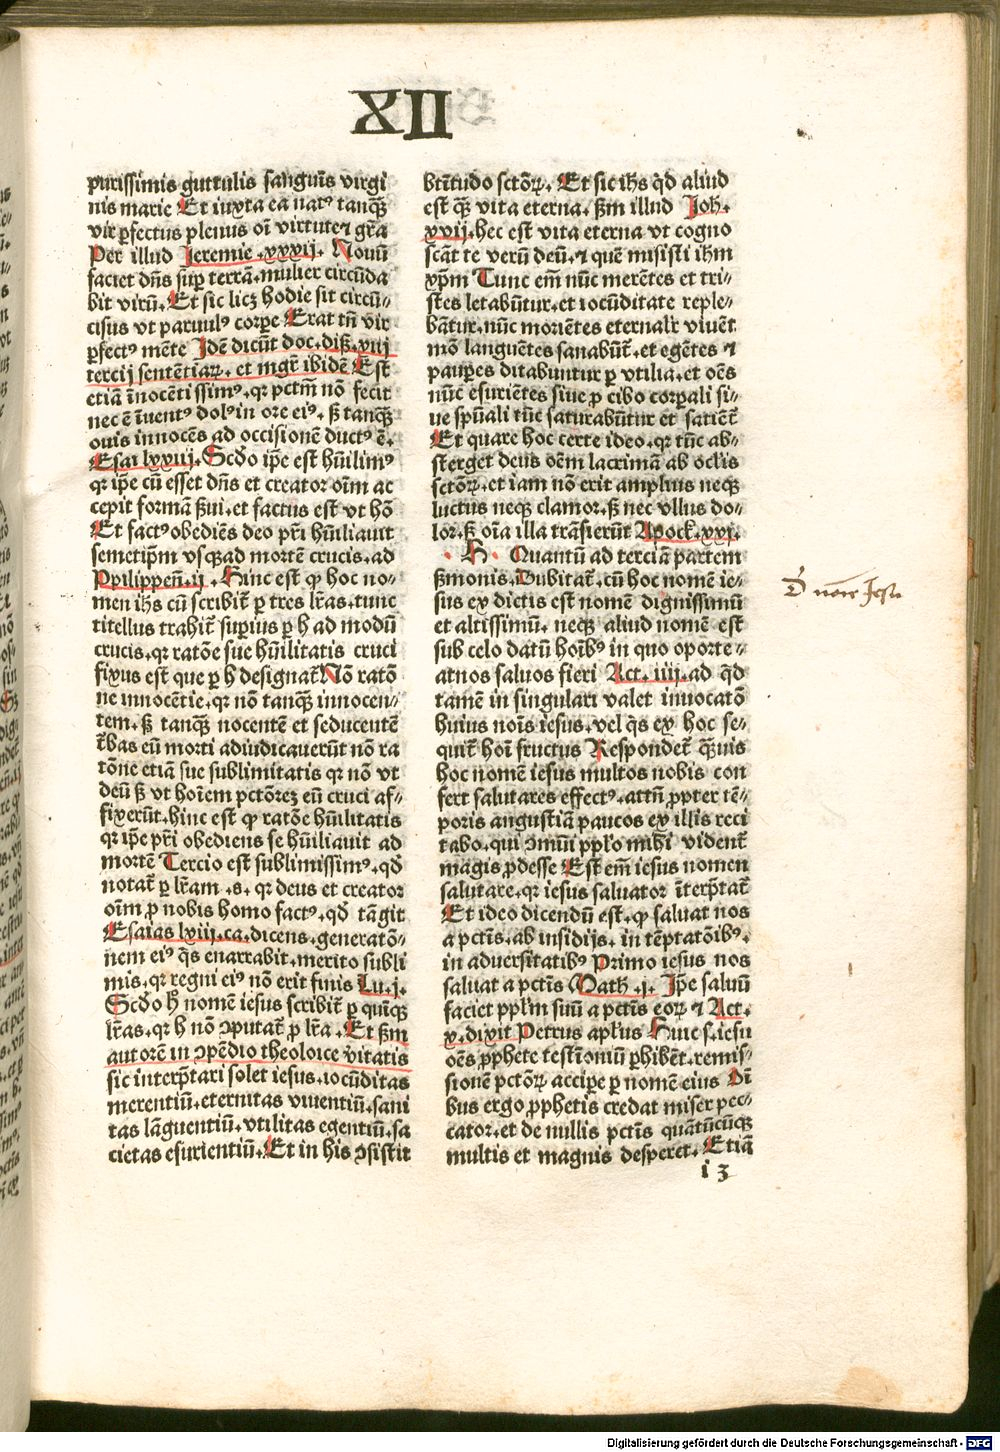 XII
purissimis guttulis sanguīs virgi
nis marie Et iuxta ea natꝰ tanqͣ̄
vir ꝑfectus plenus oī virtute ⁊ gr̄a
Per illud Jeremie .xxxij. Nouū
faciet dn̄s suꝑ terrā. mulier circūda
bit virū. Et sic licꝫ hodie sit circū⸗
cisus vt paruulꝰ corꝑe Erat tn̄ vir
ꝑfectꝰ mēte Jdē dicūt doc. diß. xiij
tercij sentētiaꝝ. et mgr̄ ibidē Est
etiā inocētissimꝰ. qꝛ pctm̄ nō fecit
nec ē īuentꝰ dolꝰ in ore eiꝰ. ß tanqͣ̄
ouis innocēs ad occisionē ductꝰ ē.
Esai lxxiij. Scd̄o ip̄e est hūilimꝰ
qꝛ ip̄e cū esset dn̄s et creator oīm ac
cepit formā ßui. et factus est vt hō
Et factꝰ obediēs deo pr̄i hūiliauit
semetip̄m vsqꝫ ad mortē crucis. ad
Ppilippeñ. ij. Hinc est ꝙ hoc no⸗
men ihs cū scribit̄ ꝑ tres lr̄as. tunc
titellus trahit̄ suꝑius ꝑ h ad modū
crucis. qꝛ ratōe sue hūilitatis cruci
fixus est que ꝑ h designat̄ Nō ratō
ne innocētie. qꝛ nō tanqͣ̄ innocen⸗
tem. ß tanqͣ̄ nocentē et seducentē
t̄bas eū morti adiudicauerūt nō ra
tōne etiā sue sublimitatis qꝛ nō vt
deū ß vt hoīem pctōreꝫ eū cruci af⸗
fixerūt. hinc est ꝙ ratōe hūilitatis
qꝛ ip̄e pr̄i obediens se hūiliauit ad
mortē Tercio est sublimissimꝰ. qd̄
notat̄ ꝑ lr̄am .s. qꝛ deus et creator
oīm ꝓ nobis homo factꝰ. qd̄ tāgit
Esaias lxiij. ca. dicens. generatō⸗
nem eiꝰ qͥs enarrabit. merito subli
mis. qꝛ regni eiꝰ nō erit finis Lu. j.
Scd̄o h̄ nomē iesus scribit̄ ꝑ quīqꝫ
lr̄as. qꝛ h nō ꝯputat̄ ꝓ lr̄a. Et ßm
autorē in ꝯpēdio theoloice v̄itatis
sic interp̄tari solet iesus. iocūditas
merentiū. eternitas viuentiū. sani
tas lāguentiū. vtilitas egentiū. sa
cietas esurientiū. Et in his ꝯsistit
btītudo sctōꝝ. Et sic ihs qd̄ aliud
est qͣ̄ vita eterna. ßm illud Joh.
xvij. hec est vita eterna vt cogno
scāt te verū deū. ⁊ quē misisti ihm
xp̄m Tunc em̄ nūc merētes et tri⸗
stes letabūtur. et iocūditate reple⸗
būtur. nūc moriētes eternalr̄ viuēt
mō languētes sanabūt̄. et egētes ⁊
pauꝑes ditabuntur ꝑ vtilia. et oēs
nūc esuriētes siue ꝓ cibo corꝑali si⸗
ue spūali tūc saturabūtur et satiēt̄
Et quare hoc certe ideo. qꝛ tūc ab⸗
sterget deus oēm lacrimā ab oclis
sctōꝝ. et iam nō erit amplius neqꝫ
luctus neqꝫ clamor. ß nec vllus do⸗
lor. ß oīa illa trāsierūt Apock. xxi.
. H. Quantū ad terciā partem
ßmonis. Dubitat̄. cū hoc nomē ie⸗
sus ex dictis est nomē dignissimū
et altissimū. neqꝫ aliud nomē est
sub celo datū hoībꝰ in quo oporte⸗
at nos saluos fieri Act. iiij. ad qd̄
tamē in singulari valet inuocatō
huius noīs iesus. vel qͥs ex hoc se⸗
quit̄ hoī fructus Respondet̄ qͣ̄uis
hoc nomē iesus multos nobis con
fert salutares effectꝰ. attn̄ ꝓpter tē⸗
poris angustiā paucos ex illis reci
tabo. qui ꝯmūi pplo mihi vident̄
magis ꝓdesse Est em̄ iesus nomen
salutare. qꝛ iesus saluator īterp̄tat̄
Et ideo dicendū est. ꝙ saluat nos
a pctīs. ab insidijs. in tēptatōibꝰ.
in aduersitatibꝰ Primo iesus nos
saluat a pctīs Math. j. Jp̄e saluū
faciet pplm̄ suū a pctīs eoꝝ ⁊ Act.
x. dixit Petrus apl̄us Huic .s. iesu
oēs ꝓphete testīoniū ꝑhibēt. remis⸗
sionē pctōꝝ acciꝑe ꝑ nomē eius Oī
bus ergo ꝓphetis credat miser pec⸗
cator. et de nullis pctīs quātūcūqꝫ
multis et magnis desperet. Etiā
i 3
Digitalisierung gefördert durch die Deutsche Forschungsgemeinschaft - DFG